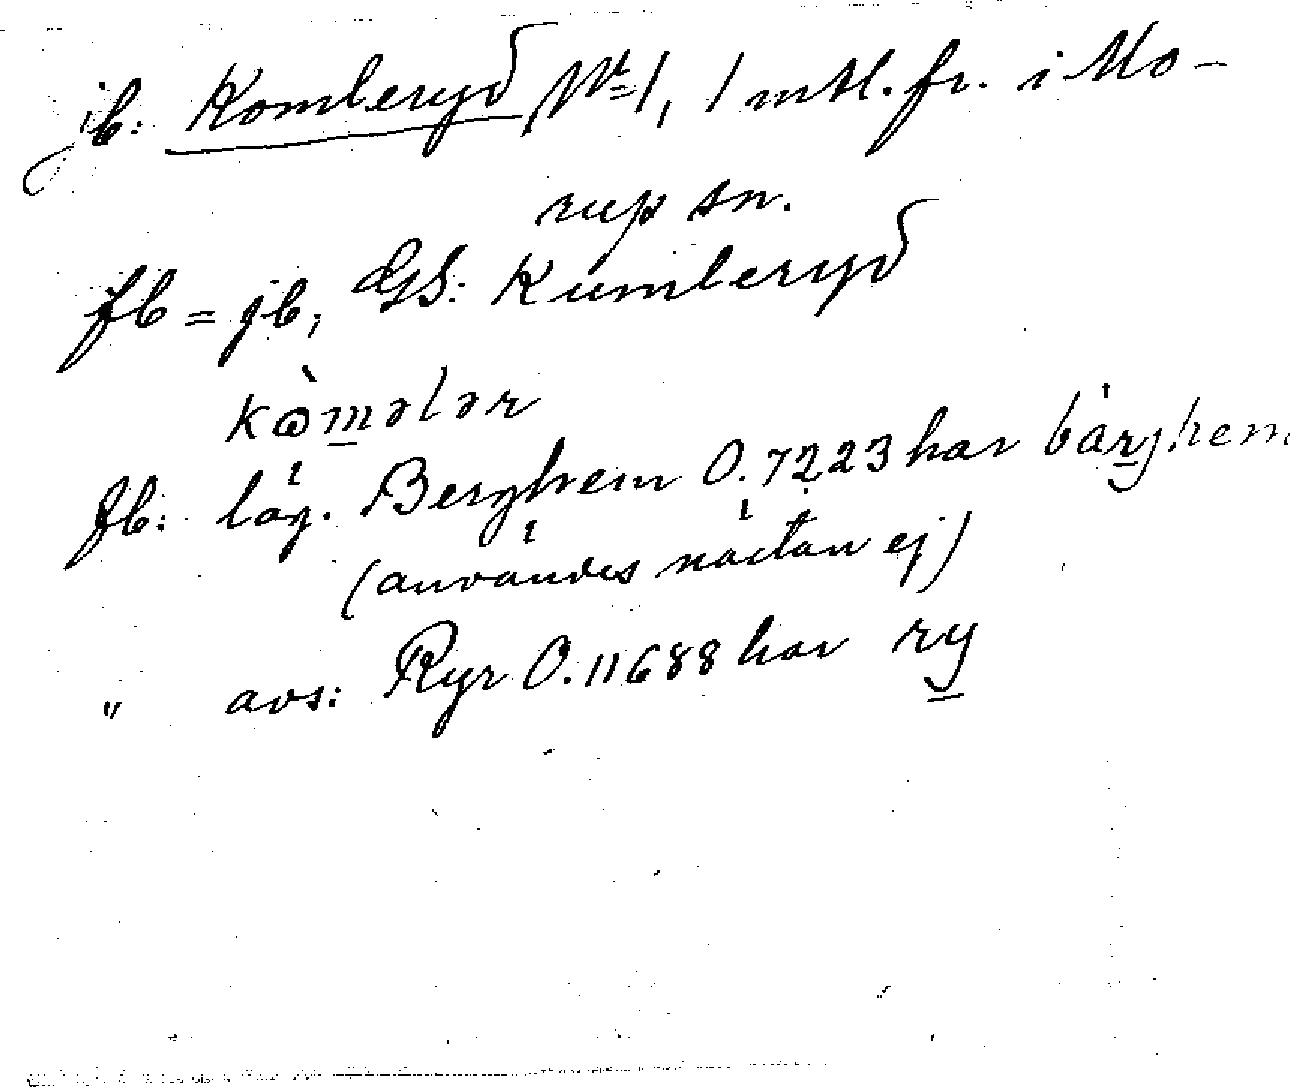 jb: Kombleryd Nr 1, 1 mtl. fr. i Mo-
rup sn.
fb = jb, GS: Kumbleryd
kòmələr
fb: läg. Berghem O. 7223 har bärjhem
(användes nästan ej)
" avs: Ryr O. 11688 har ry